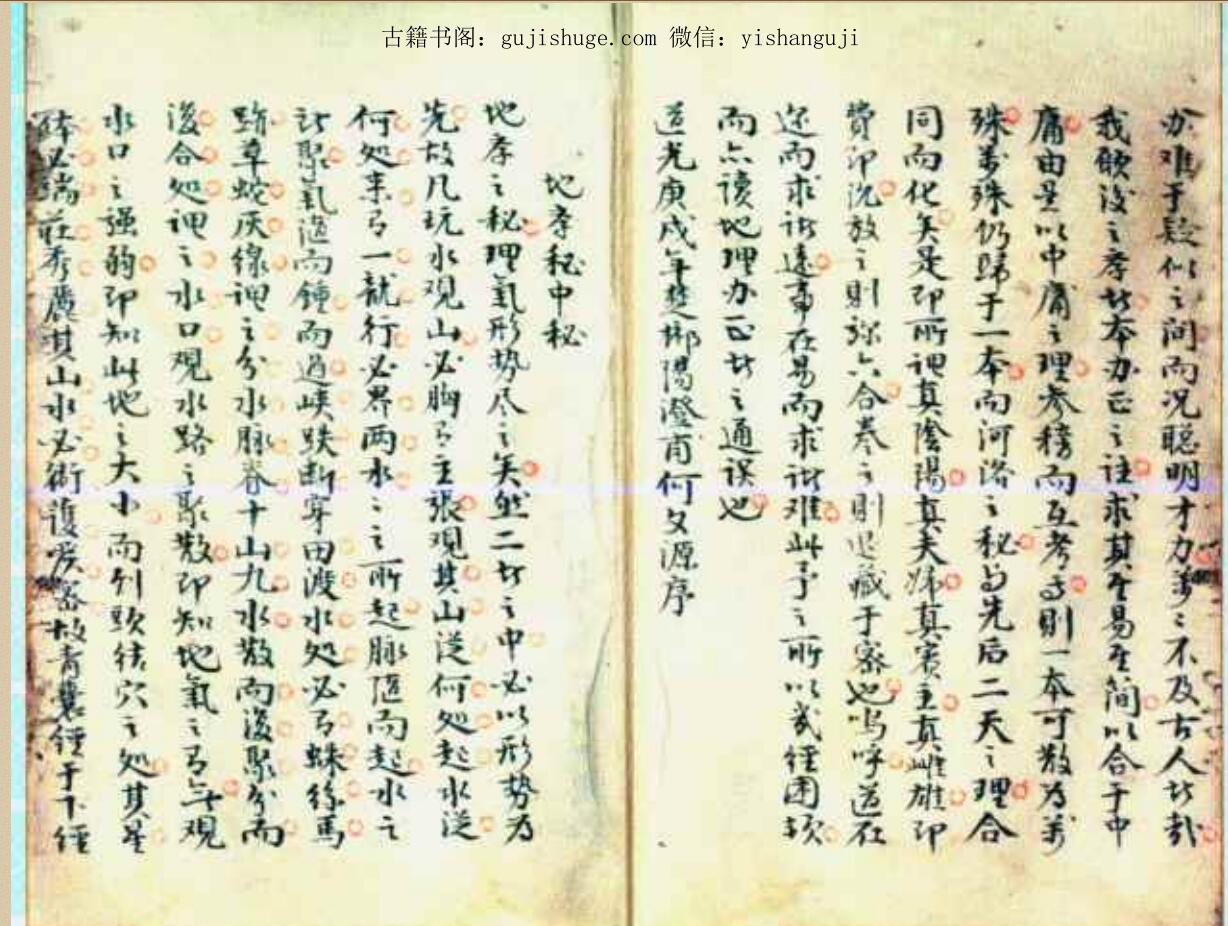 古籍书阁：gujishuge.com 微信：yishanguji
办难于疑似之间而况聪明才力万々不及古人者哉
我欲后之学者本办正之注求其至易至简以合于中
庸由是以中庸之理参稽而互考焉则一本可散为万
殊万殊仍归于一本而河洛之秘与先后二天之理合
同而化矣是即所谓真阴阳真夫妇真宾主真雌雄即
费即沉放之则弥六合卷之则退藏于密也呜呼道在
迩而求诸远事在易而求诸难此予之所以
而亦读地理办正者之通误也
道光庚戌年楚郴阳澄甫何文源序
地学秘中秘
地学之秘理气形势尽之矣然二者之中必以形势为
先故凡玩水观山必胸有主张观其山从何处起水从
何处来有一龙行必界两水之之所起脉随而起水之
所聚气随而钟而过峡跌断穿田渡水处必有蛛丝马
迹草蛇灰线谓之分水脉脊十山九水散而后聚分而
后合处谓之水口观水路之聚散即知地气之有无观
水口之强弱即知此地之大小而到头结穴之处其星
体必端庄秀丽其山水必卫护严密故青囊经于下经